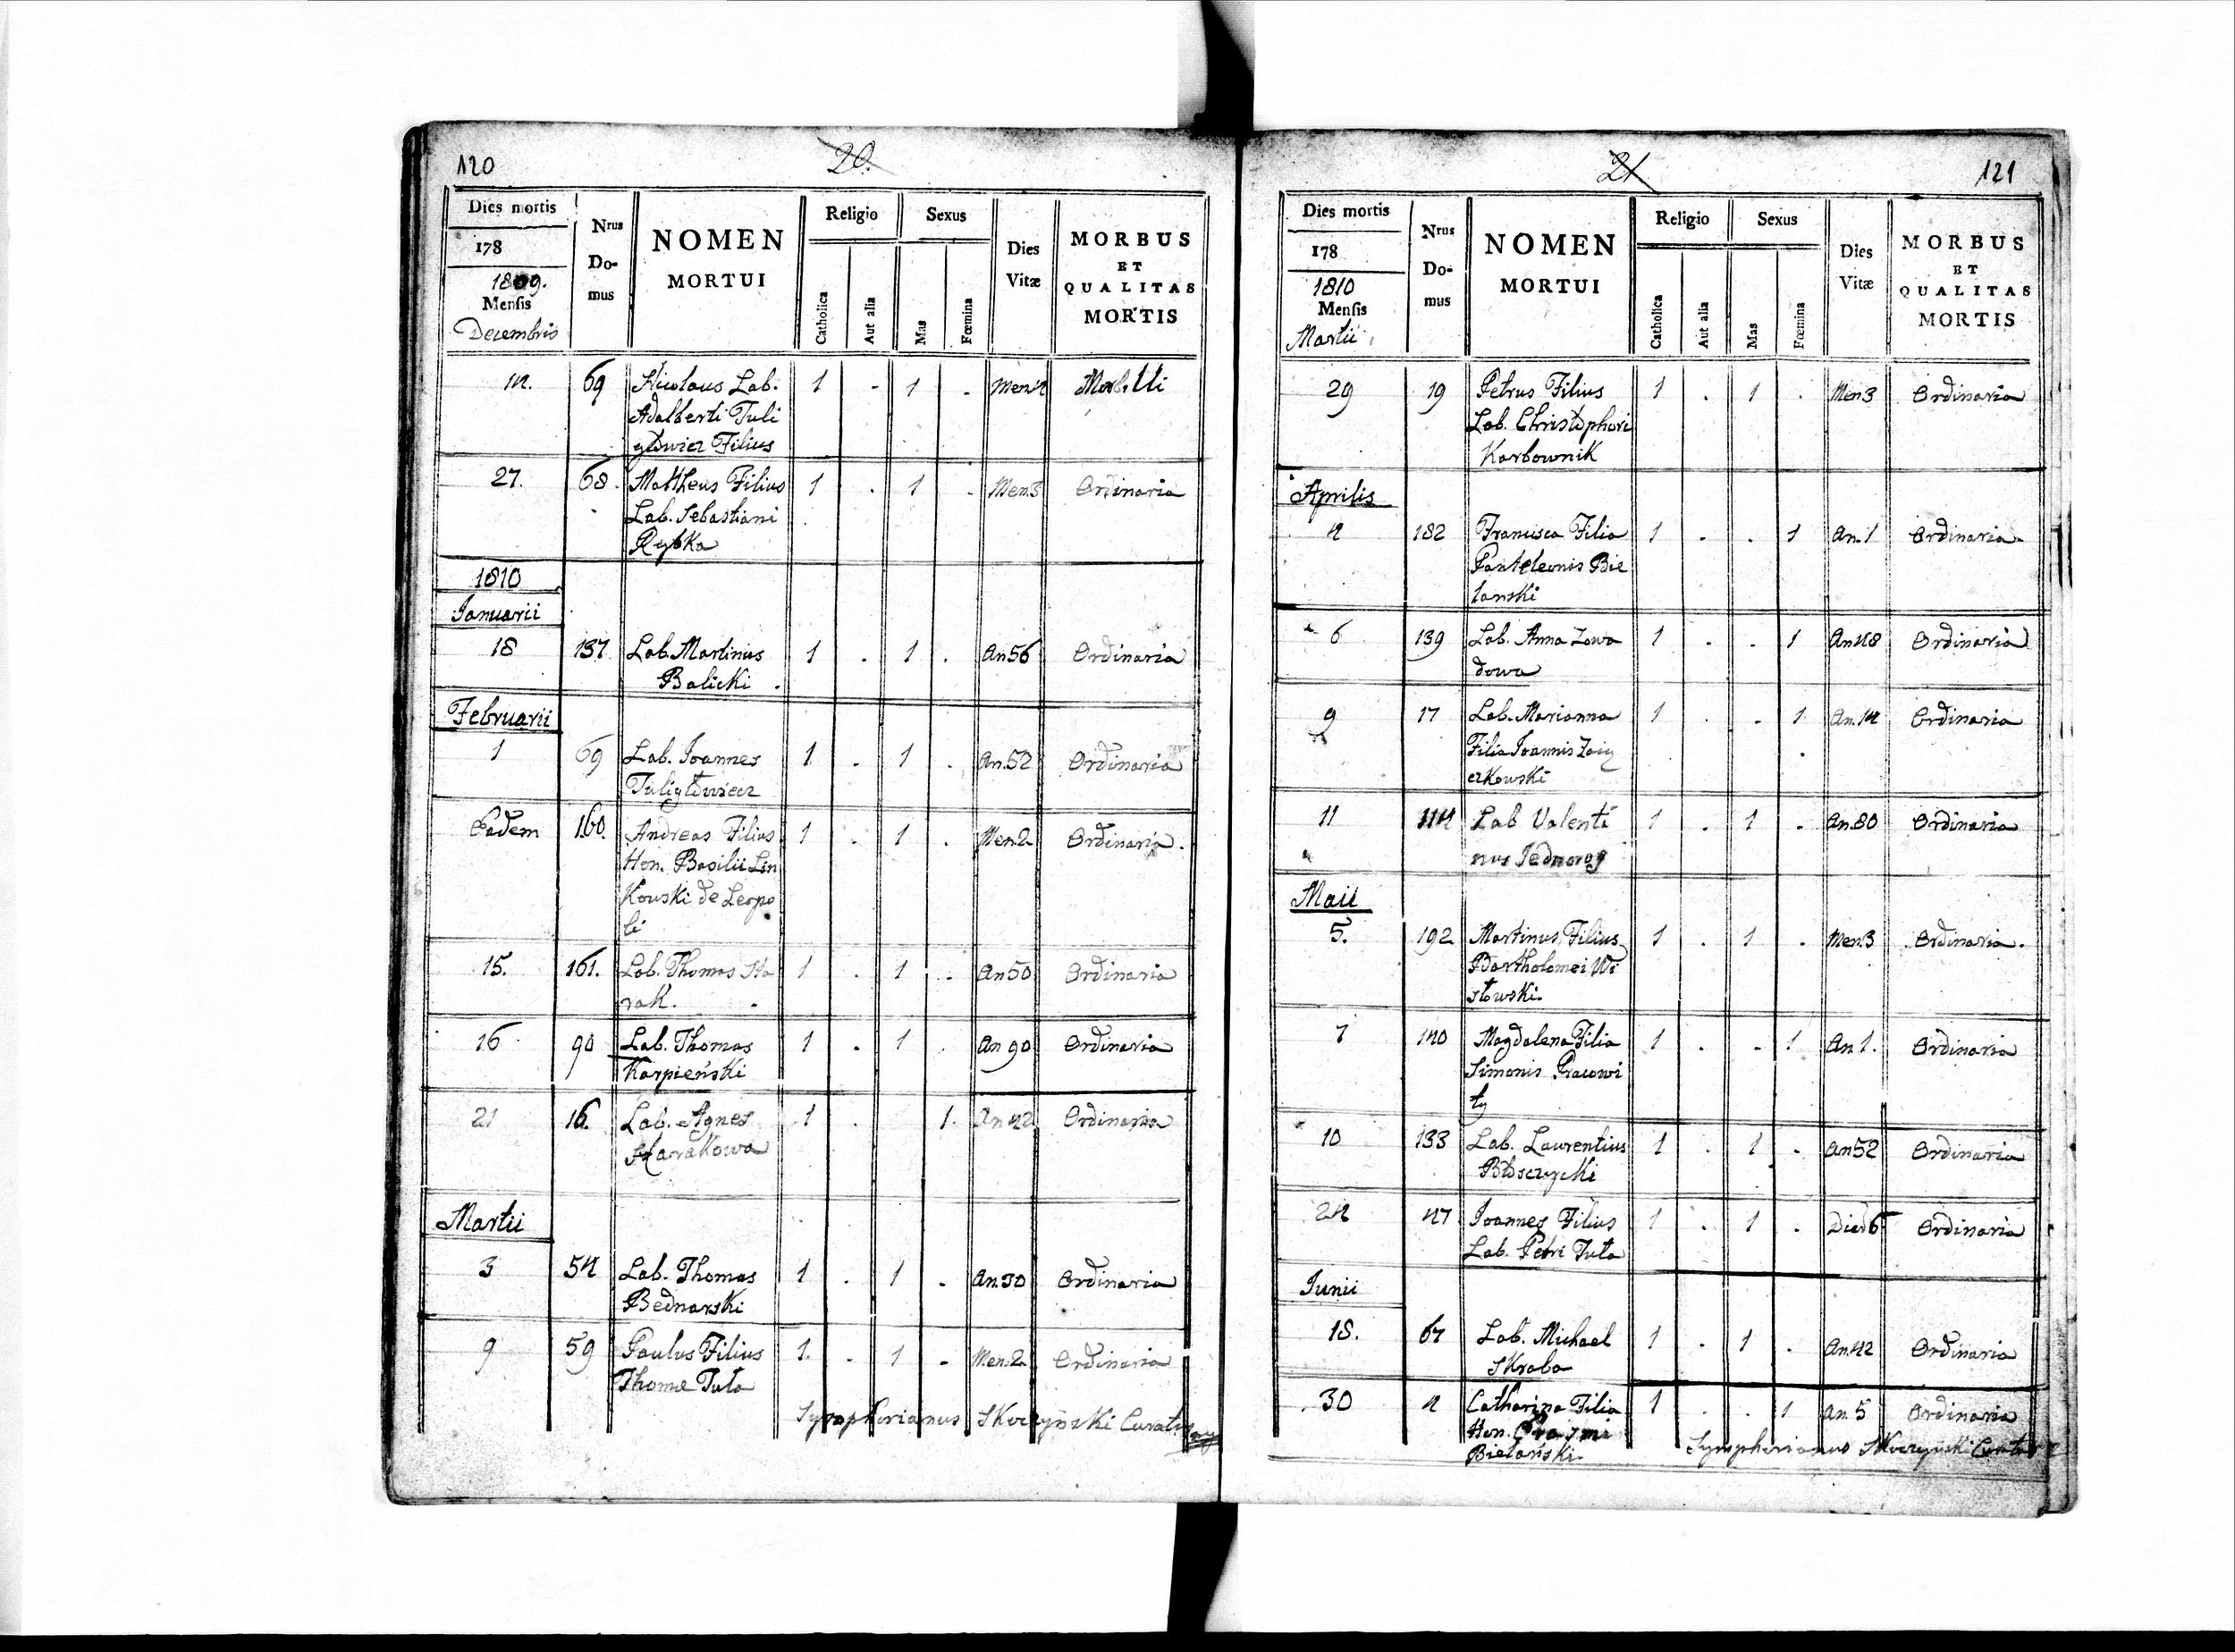 120
20.
Dies mortis
Nrus Domus
NOMEN MORTUI
Religio
Sexus
Dies Vitæ
MORBUS ET QUALITAS MORTIS
178
1809.
Mensis
Decembris
Catholica
Aut alia
Mas
Fœmina
14. 69 Nicolaus Lab. 1 - 1 . Men 4
Adalberti Tuli
głowicz Filius
27. 68. Mattheus Filius 1 . 1 . Men 3 Ordinaria
Lab. Sebastiani
Rybka
1810
Januarii
18 137 Lab. Martinus 1 . 1 . An 56 Ordinaria
Balicki .
Februarii
1 69 Lab. Joannes 1 . 1 . An. 52 Ordinaria
Tuligłowicz
Eadem 160. Andreas Filius 1 . 1 . Men. 2. Ordinaria.
Hon. Basilii Lin
kowski de Leopo
li
15. 161. Lab. Thomas Ha 1 . 1 . An 50 Ordinaria
rak.
16 90 Lab. Thomas 1 . 1 . An 90 Ordinaria
Karpieński
21 16. Lab. Agnes 1 . 1. An 42 Ordinaria
Harakowa
Martii
3 54 Lab. Thomas 1 . 1 . An. 30 Ordinaria
Bednarski
9 59 Paulus Filius 1. . 1 . Men. 2. Ordinaria
Thomæ Tuta
Symphorianus Skoczyński Curatus
21
121
Dies mortis
Nrus Domus
NOMEN MORTUI
Religio
Sexus
Dies Vitæ
MORBUS ET QUALITAS MORTIS
178
1810
Mensis
Martii
Catholica
Aut alia
Mas
Fœmina
29 19 Petrus Filius 1 . 1 . Men 3 Ordinaria
Lab. Christophori
Karbownik
Aprilis
4 182 Francisca Filia 1 . . 1 An. 1 Ordinaria.
Panteleonis Bie
lanski
6 139 Lab. Anna Zawa 1 . . 1 An 48 Ordinaria
dowa
9 17 Lab. Marianna 1 . . 1 An. 14 Ordinaria
Filia Joannis Zaią
czkowski
11 114 Lab Valenti 1 . 1 . An. 80 Ordinaria
nus Jednorog
Maii
5. 192 Martinus Filius 1 . 1 . Men 3 Ordinaria.
Bartholomei Wi
słowski.
7 140 Magdalena Filia 1 . . 1 An 1. Ordinaria
Simonis Pracowi
ty
10 133 Lab. Laurentius 1 . 1 . An 52 Ordinaria
Błosczycki
24 47 Joannes Filius 1 . 1 . Dies 6 Ordinaria
Lab. Petri Tuta
Junii
18. 67 Lab. Michael 1 . 1 . An 42 Ordinaria
Skraba
30 4 Catharina Filia 1 . . 1 An. 5 Ordinaria
Hon.
Bielański.
Symphorianus Skoczyński Curatus